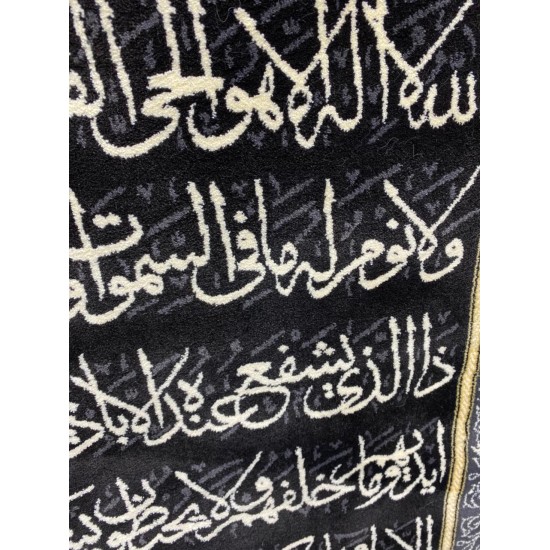 لله لا اله الا هو الحي
ولا نوم له ما في السموات
ذا الذي يشفع عنده الا باذ
ايديهم وما خلفهم ولا يحيطون